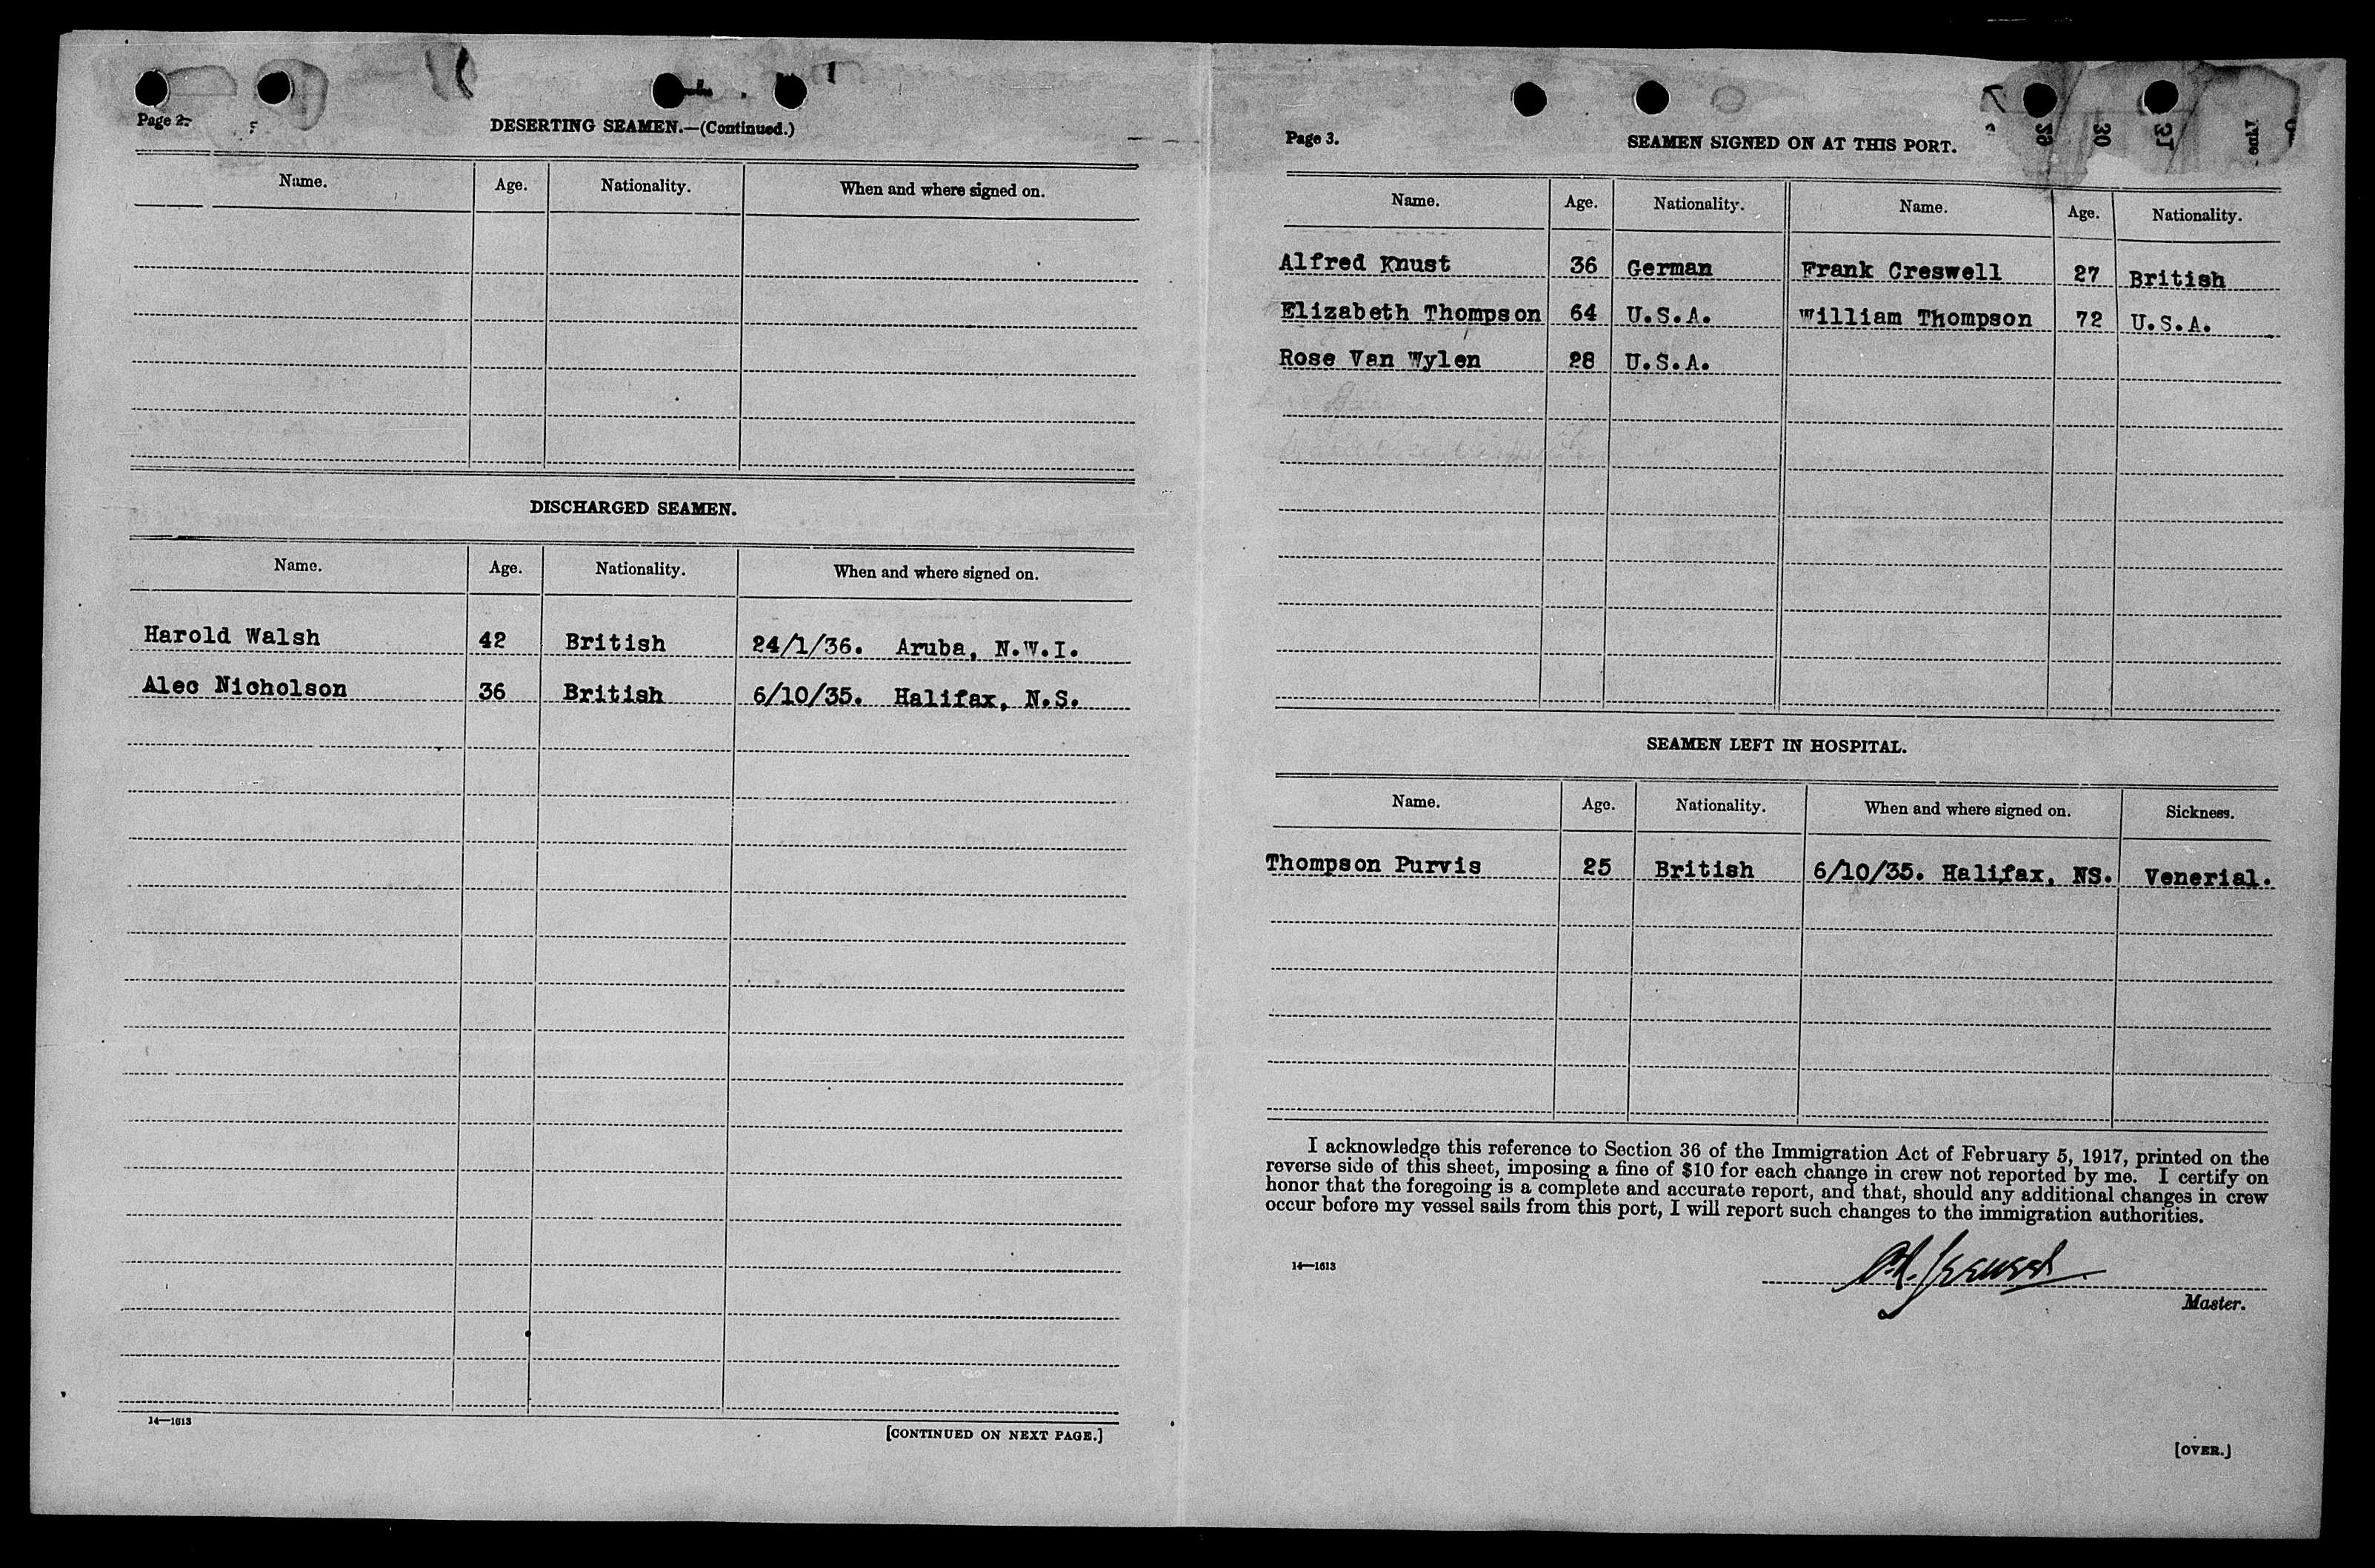 Page 2.
DESERTING SEAMEN.—(Continued.)
Name. Age. Nationality. When and where signed on.
DISCHARGED SEAMEN.
Name. Age. Nationality. When and where signed on.
Harold Walsh 42 British 24/1/36. Aruba, N.W.I.
Alec Nicholson 36 British 6/10/35. Halifax, N.S.
14—1613
[CONTINUED ON NEXT PAGE.]
Page 3.
29 30 31
SEAMEN SIGNED ON AT THIS PORT.
Name. Age. Nationality. Name. Age. Nationality.
Alfred Knust 36 German Frank Creswell 27 British
Elizabeth Thompson 64 U.S.A. William Thompson 72 U.S.A.
Rose Van Wylen 28 U.S.A.
SEAMEN LEFT IN HOSPITAL.
Name. Age. Nationality. When and where signed on. Sickness.
Thompson Purvis 25 British 6/10/35. Halifax, NS. Venerial.
I acknowledge this reference to Section 36 of the Immigration Act of February 5, 1917, printed on the
reverse side of this sheet, imposing a fine of $10 for each change in crew not reported by me. I certify on
honor that the foregoing is a complete and accurate report, and that, should any additional changes in crew
occur before my vessel sails from this port, I will report such changes to the immigration authorities.
14—1613
Master.
[OVER.]